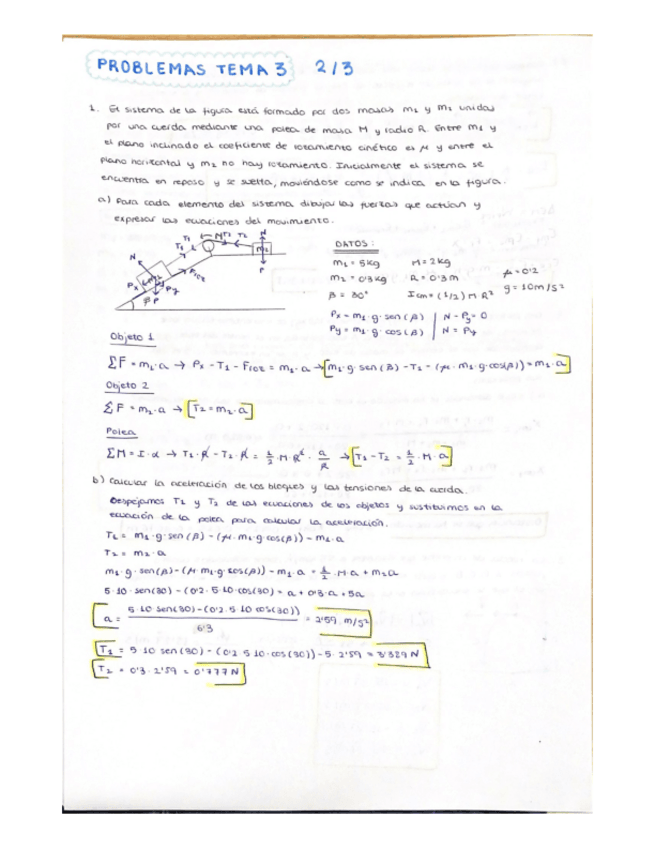 PROBLEMAS TEMA 3 2/3
1. El sistema de la figura está formado por dos masas m₁ y m₂ unidas
por una cuerda mediante una polea de masa M y radio R. Entre m₁ y
el plano inclinado el coeficiente de rozamiento cinético es μ y entre el
plano horizontal y m₂ no hay rozamiento. Inicialmente el sistema se
encuentra en reposo y se suelta, moviéndose como se indica en la figura.
a) Para cada elemento del sistema dibujar las fuerzas que actúan y
expresar las ecuaciones del movimiento.
N T₁ T₁ N T₁ T₂ N m₂ P
Px Py P β Froz
DATOS:
m₁ = 5kg M = 2kg μ = 0'2
m₂ = 0'3kg R = 0'3m g = 10m/s²
β = 30° Icm = (1/2) M·R²
Px = m₁·g·sen(β) N - Py = 0
Py = m₁·g·cos(β) N = Py
Objeto 1
ΣF = m₁·a → Px - T₁ - Froz = m₁·a → m₁·g·sen(β) - T₁ - (μ·m₁·g·cos(β)) = m₁·a
Objeto 2
ΣF = m₂·a → T₂ = m₂·a
Polea
ΣM = I·α → T₁·R - T₂·R = 1/2·M·R²·a/R → T₁ - T₂ = 1/2·M·a
b) Calcular la aceleración de los bloques y las tensiones de la cuerda.
Despejamos T₁ y T₂ de las ecuaciones de los objetos y sustituimos en la
ecuación de la polea para calcular la aceleración.
T₁ = m₁·g·sen(β) - (μ·m₁·g·cos(β)) - m₁·a
T₂ = m₂·a
m₁·g·sen(β) - (μ·m₁·g·cos(β)) - m₁·a = 1/2·M·a + m₂a
5·10·sen(30) - (0'2·5·10·cos(30) = a + 0'3·a + 5a
a = 5·10 sen(30) - (0'2·5·10 cos(30)) / 6'3 = 2'59 m/s²
T₁ = 5·10 sen(30) - (0'2·5·10·cos(30)) - 5·2'59 = 3'389 N
T₂ = 0'3·2'59 = 0'777 N